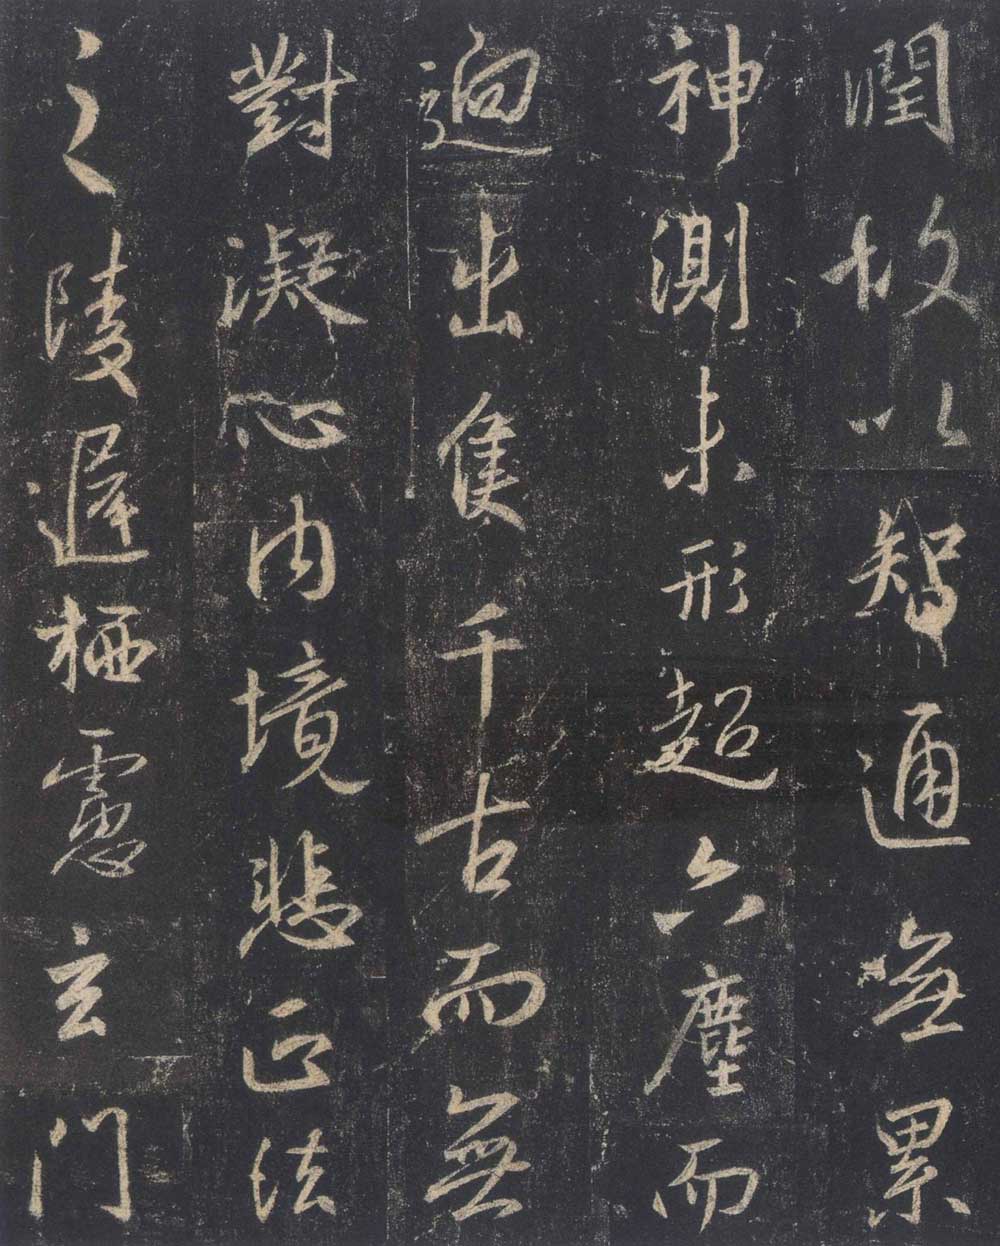 潤故以智通無累
神測未形超六塵而
逈出隻千古而無
對凝心內境悲正法
之陵遲栖慮玄門